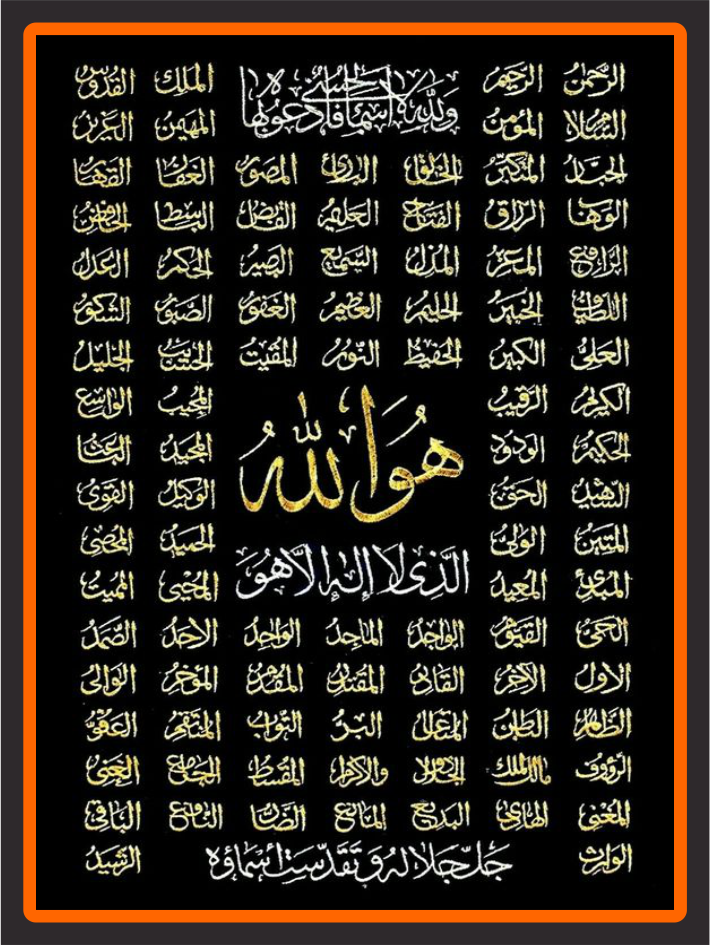 الرحمن الرحيم ولله الأسماء الحسنى فادعوه بها الملك القدوس
السلام المؤمن المهيمن العزيز
الجبار المتكبر الخالق البارئ المصور الغفار القهار
الوهاب الرزاق الفتاح العليم القابض الباسط الخافض
الرافع المعز المذل السميع البصير الحكم العدل
اللطيف الخبير الحليم العظيم الغفور الصبور الشكور
العلى الكبير الحفيظ النور المقيت الحسيب الجليل
الكريم الرقيب المجيب الواسع
الحكيم الودود المجيد الباعث
هُوَ الله
الشهيد الحق الوكيل القوى
المتين الولى الحميد المحصى
الَّذِى لا إله الَّا هُوَ
المبدئ المعيد المحيى المميت
الحى القيوم الواجد الماجد الواحد الاحد الصمد
الاول الآخر القادر المقتدر المقدم المؤخر الوالى
الظاهر الباطن المتعال البر التواب المنتقم العفو
الرؤوف مالك الملك ذوالجلال والاكرام المقسط الجامع الغنى
المغنى الهادى البديع المانع الضار النافع الباقى
الوارث جَلَّ جَلالُهُ وَتَقَدَّسَت أسْمَاؤُه الرشيد